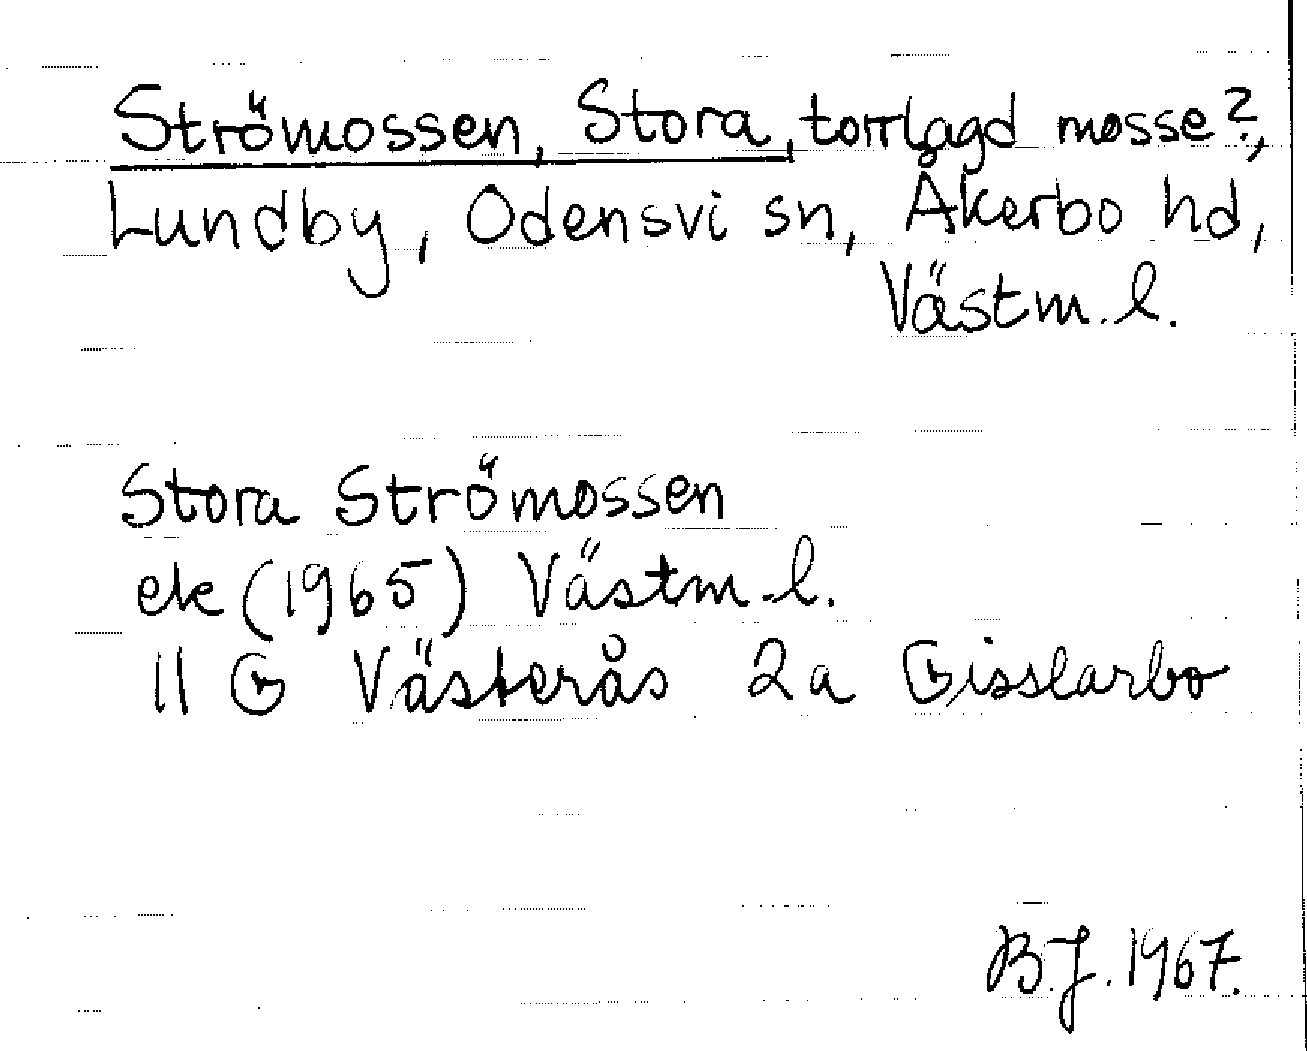 Strömossen, Stora, torrlagd mosse?,
Lundby, Odensvi sn, Åkerbo hd,
Västm. l.
Stora Strömossen
ek (1965) Västm. l.
11 G Västerås 2a Gisslarbo
B.J. 1967.